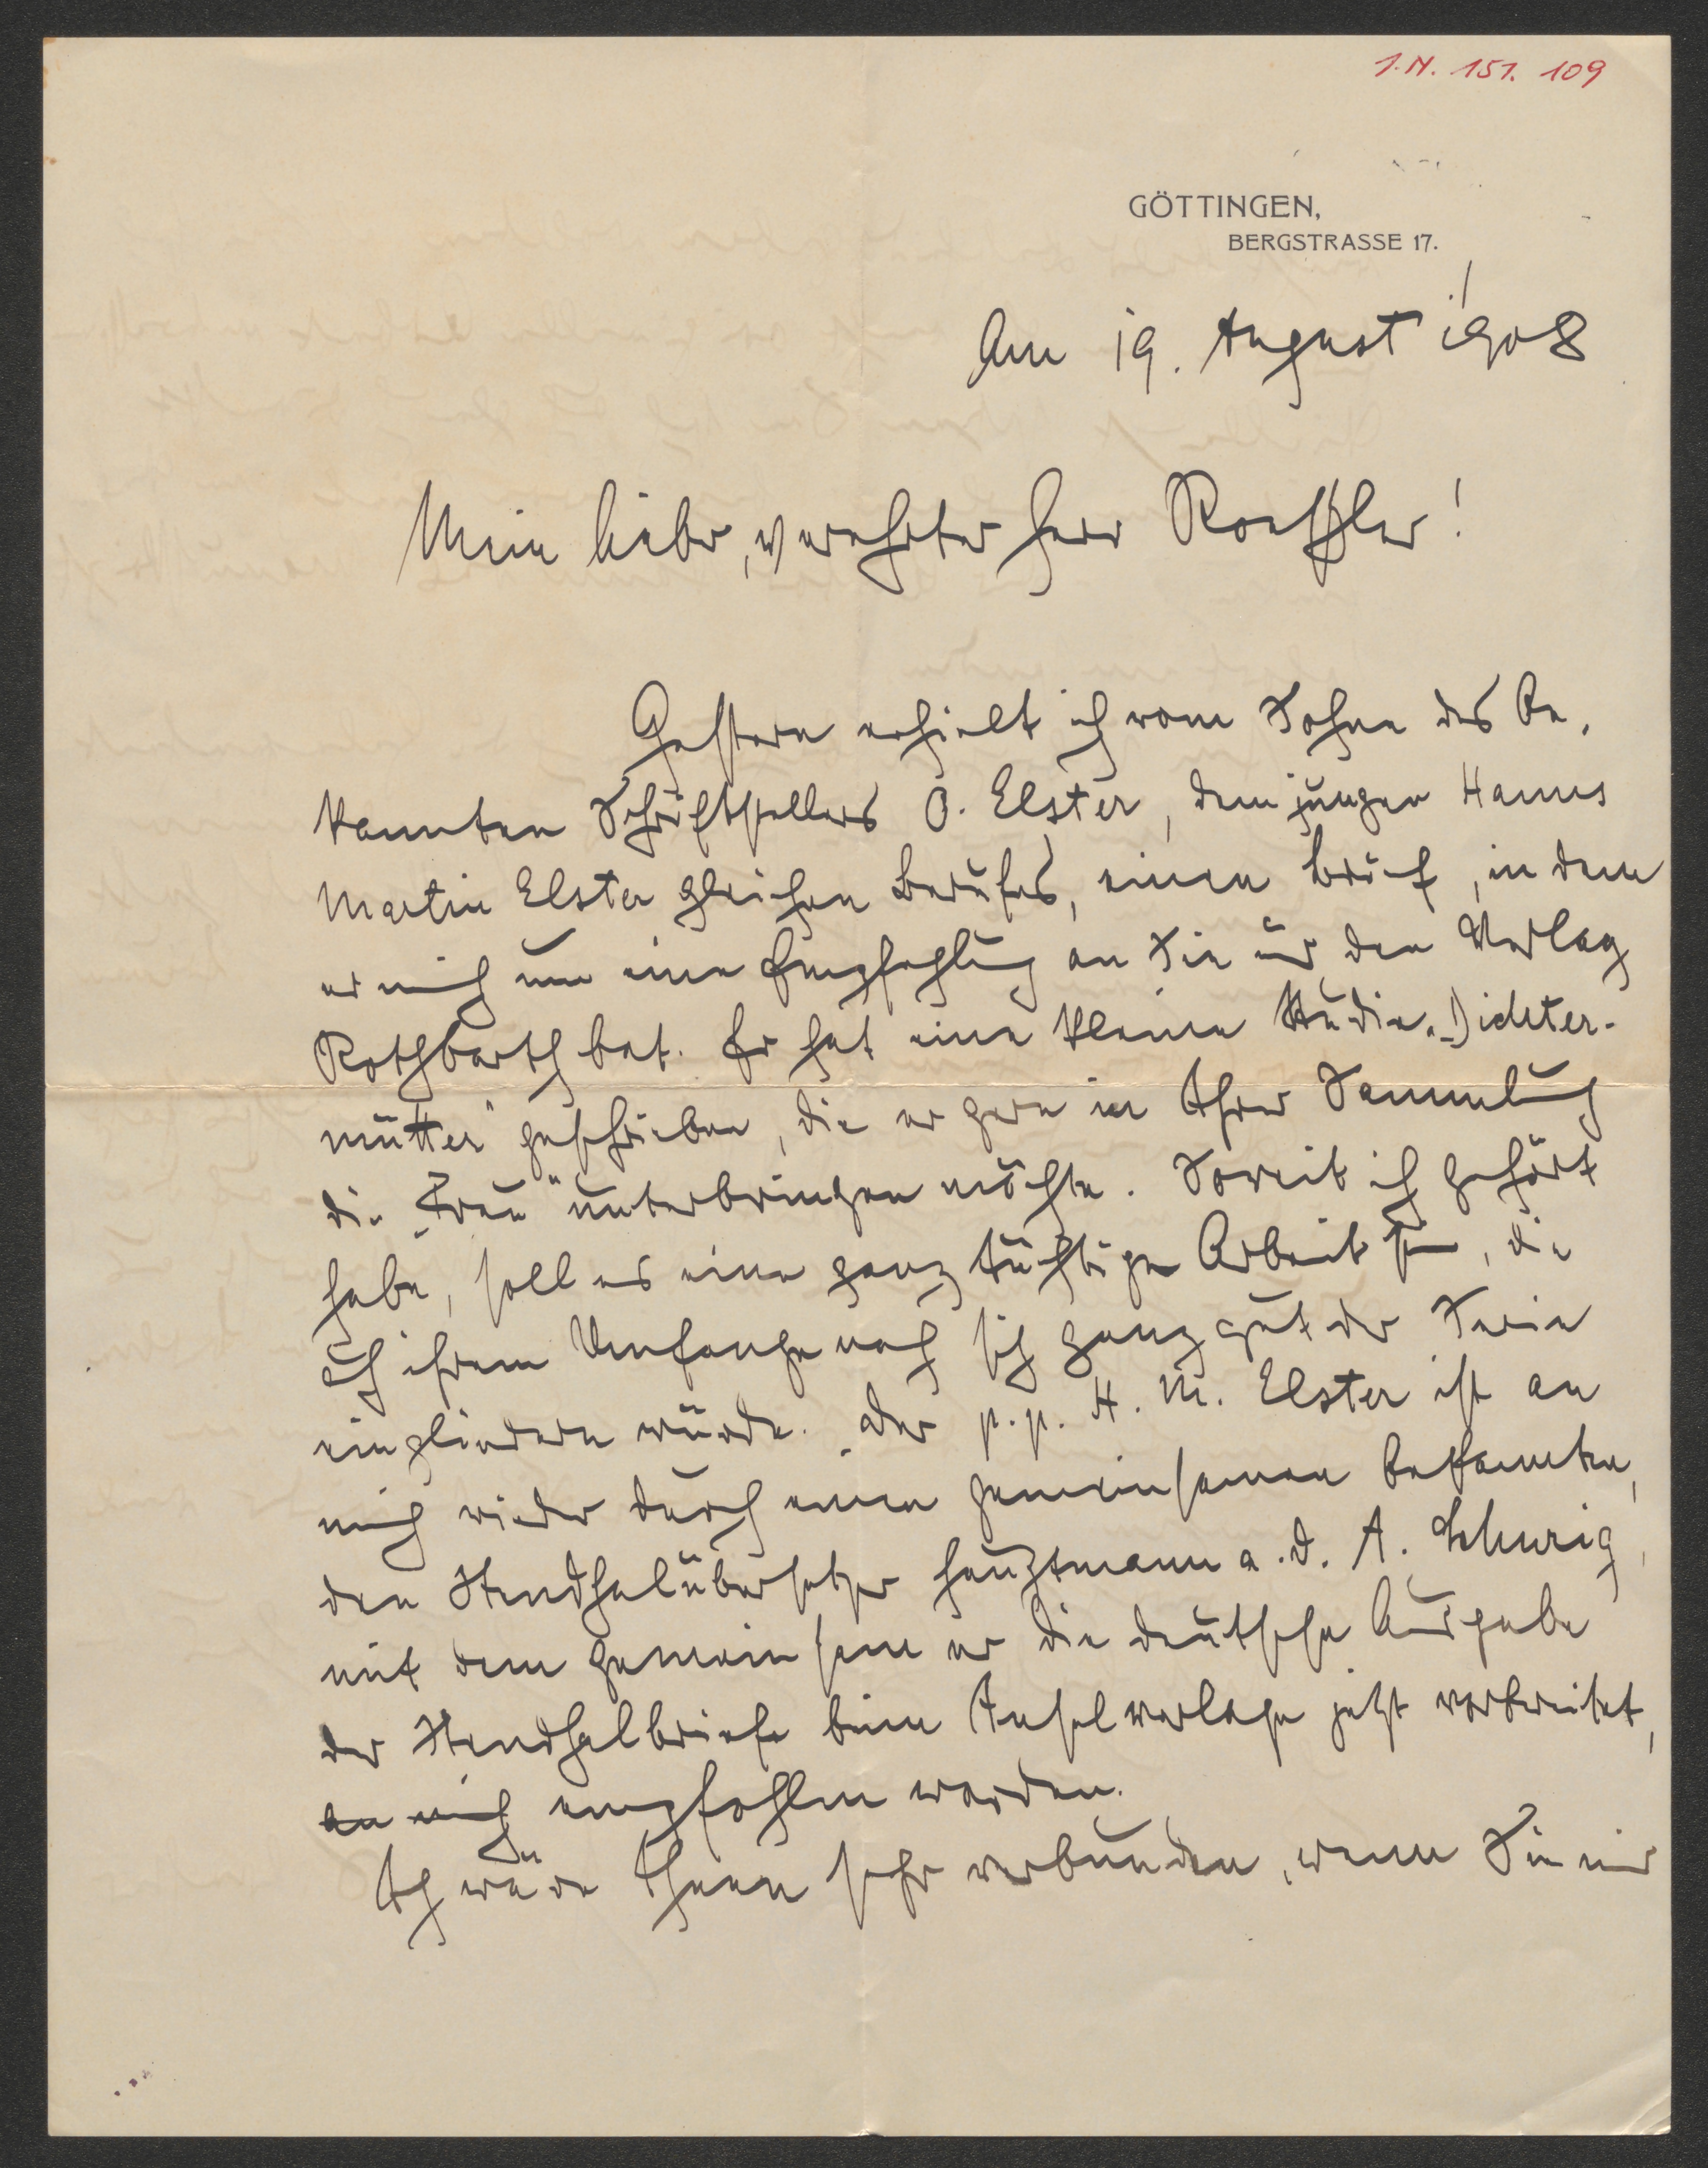 I.N. 151. 109
GÖTTINGEN,
BERGSTRASSE 17.
Am 19. August 1908
Mein lieber, verehrter Herr Roessler!
Gestern erhielt ich vom Sohne des be-
kannten Schriftstellers O. Elster, dem jungen Hanns
Martin Elster gleichen Berufes, einen Brief, in dem
er mich um eine Empfehlung an Sie und den Verlag
Rothbarth bat. Er hat eine kleine Studie „Dichter-
mütter" geschrieben, die er gern in Ihrer Sammlung
die „Frau" unterbringen möchte. Soweit ich gehört
habe, soll es eine ganz tüchtige Arbeit sein, die
auch ihrem Umfange nach sich ganz gut der Serie
eingliedern würde. Der p.p. H. M. Elster ist an
mich wieder durch einen gemeinsamen Bekannten,
den Stendhalübersetzer Hauptmann a. D. A. Schurig,
mit dem gemeinsam er die deutsche Ausgabe
der Stendhalbriefe beim Inselverlage jetzt vorbereitet,
an mich empfohlen worden.
Ich wäre Ihnen sehr verbunden, wenn Sie mir